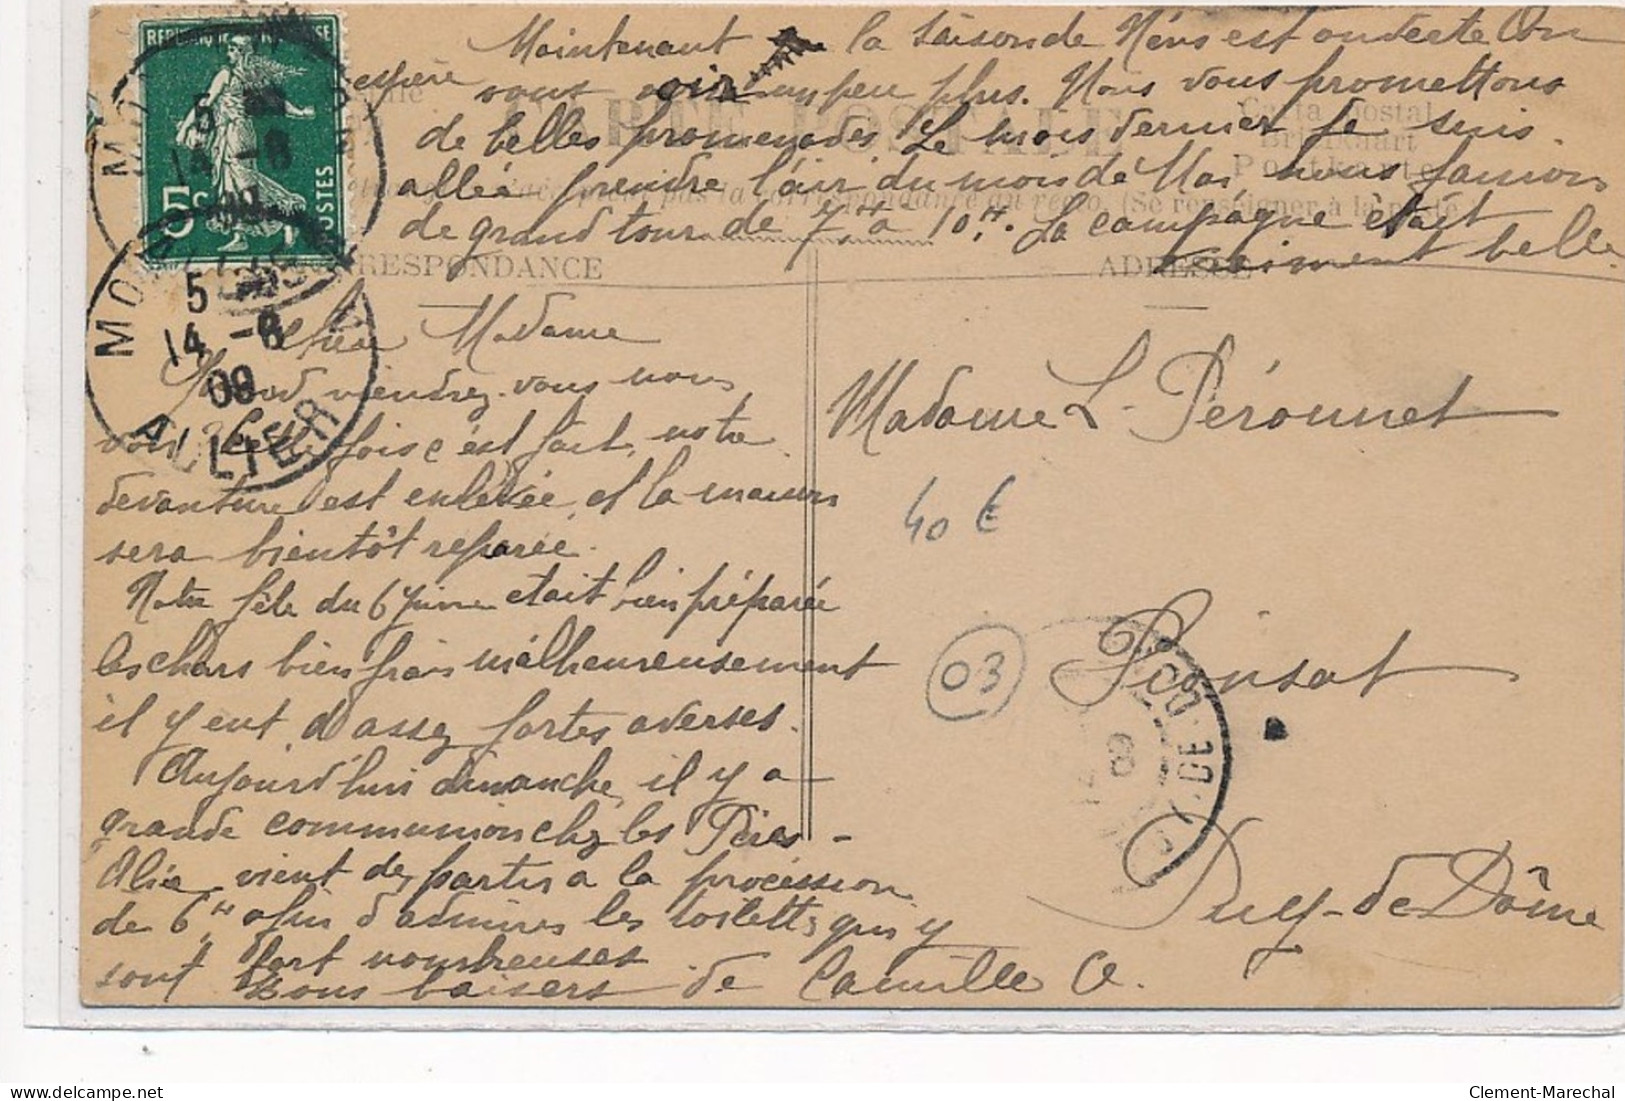 Maintenant la saison de Néris est ouverte On
espère vous voir un peu plus. Nous vous promettons
de belles promenades. Le mois dernier je suis
allée prendre l'air du mois de Mai nous faisions
de grand tour de 7H à 10H. La campagne etait
vraiment belle
REPUBLIQUE FRANÇAISE
5c POSTES
CARTE POSTALE
Carta Postal
Briefkaart
Postkarte
n'acceptent pas la correspondance au recto. (Se renseigner à la poste
CORRESPONDANCE
ADRESSE
5
14 - 6
09
ALLIER
Chère Madame
Quand viendrez-vous nous
voir? Cette fois c'est fait, notre
devanture est enlevée, et la maison
sera bientôt reparée.
Notre fête du 6 Juin etait bien préparée
les chars bien frais malheureusement
il y eut d'assez fortes averses.
Aujourd'hui dimanche, il y a
grande communion chez les Pères
Alice vient de partir a la procession
de 6H afin d'admirer les toilettes qui y
sont fort nombreuses
Bons baisers de Camille O.
Madame L. Péronnet
40 €
03
Pionsat
PUY-DE-DOME
Puy-de-Dôme
Clement-Marechal